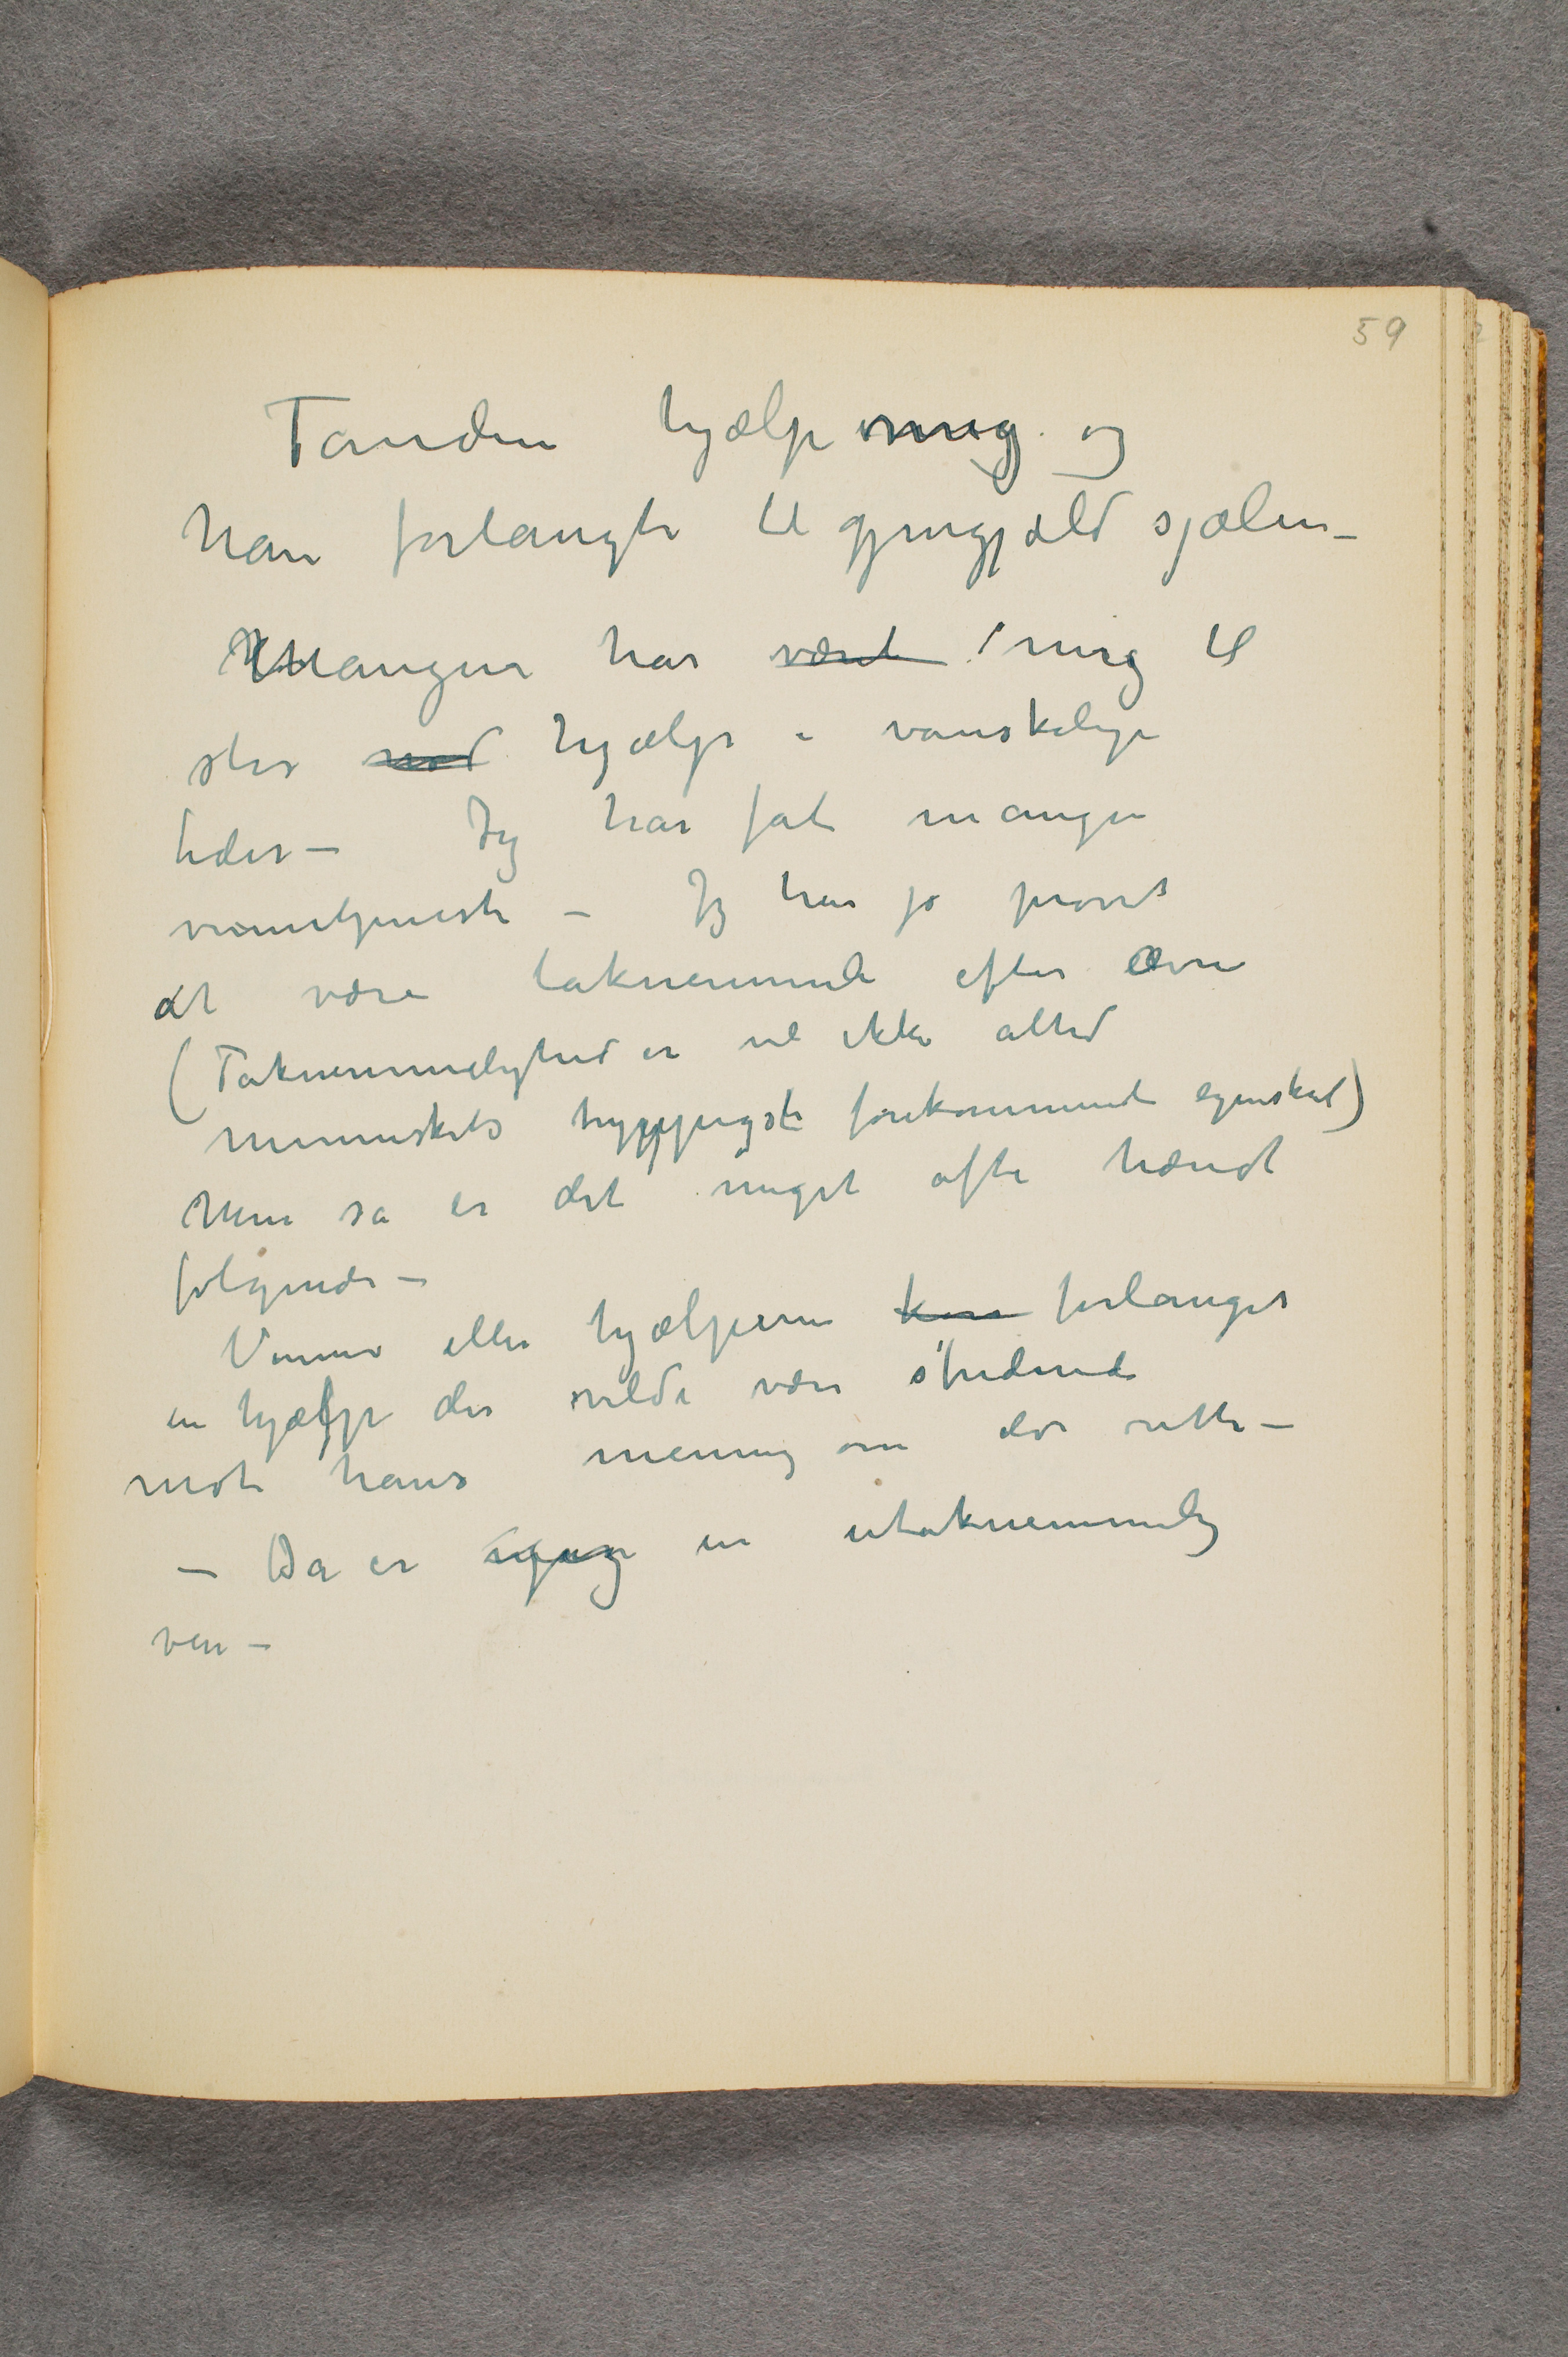 59
Fanden hjælp mig og
han forlangte til gjengjæld sjælen –
Mangen har været mig til
stor med hjælp i vanskelige
tider – Jeg har fåt mangen
vennetjeneste – Jeg har jo prøvet
at være taknemmeli efter ævne
(Taknemmelighed er vel ikke altid
menneskets hyppigste forekommende egenskab)
Men så er det meget ofte hændt
følgende –
Vennen eller hjælperen kan forlanget
en hjælp der vilde være stridende
mot hans mening om det rette –
– Da er jeg en utaknemmelig
ven –